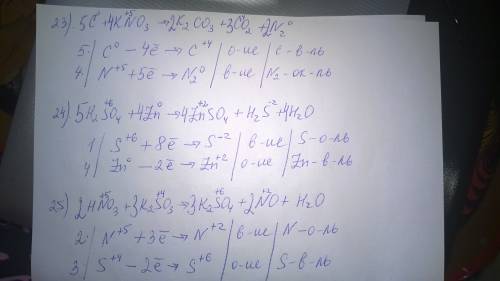 23) 5C⁰ + 4KN⁺⁵O₃ → 2K₂CO₃ + 3C⁺⁴O₂ + 2N₂⁰
5 | C⁰ - 4ē → C⁺⁴ | о-ие | с-в-ль
4 | N⁺⁵ + 5ē → N₂⁰ | в-ие | N₂-ок-ль
24) 5H₂S⁺⁶O₄ + 4Zn⁰ → 4Zn⁺²SO₄ + H₂S⁻² + 4H₂O
1 | S⁺⁶ + 8ē → S⁻² | в-ие | S-о-ль
4 | Zn⁰ - 2ē → Zn⁺² | о-ие | Zn-в-ль
25) 2HN⁺⁵O₃ + 3K₂S⁺⁴O₃ → 3K₂S⁺⁶O₄ + 2N⁺²O + H₂O
2 | N⁺⁵ + 3ē → N⁺² | в-ие | N-о-ль
3 | S⁺⁴ - 2ē → S⁺⁶ | о-ие | S-в-ль